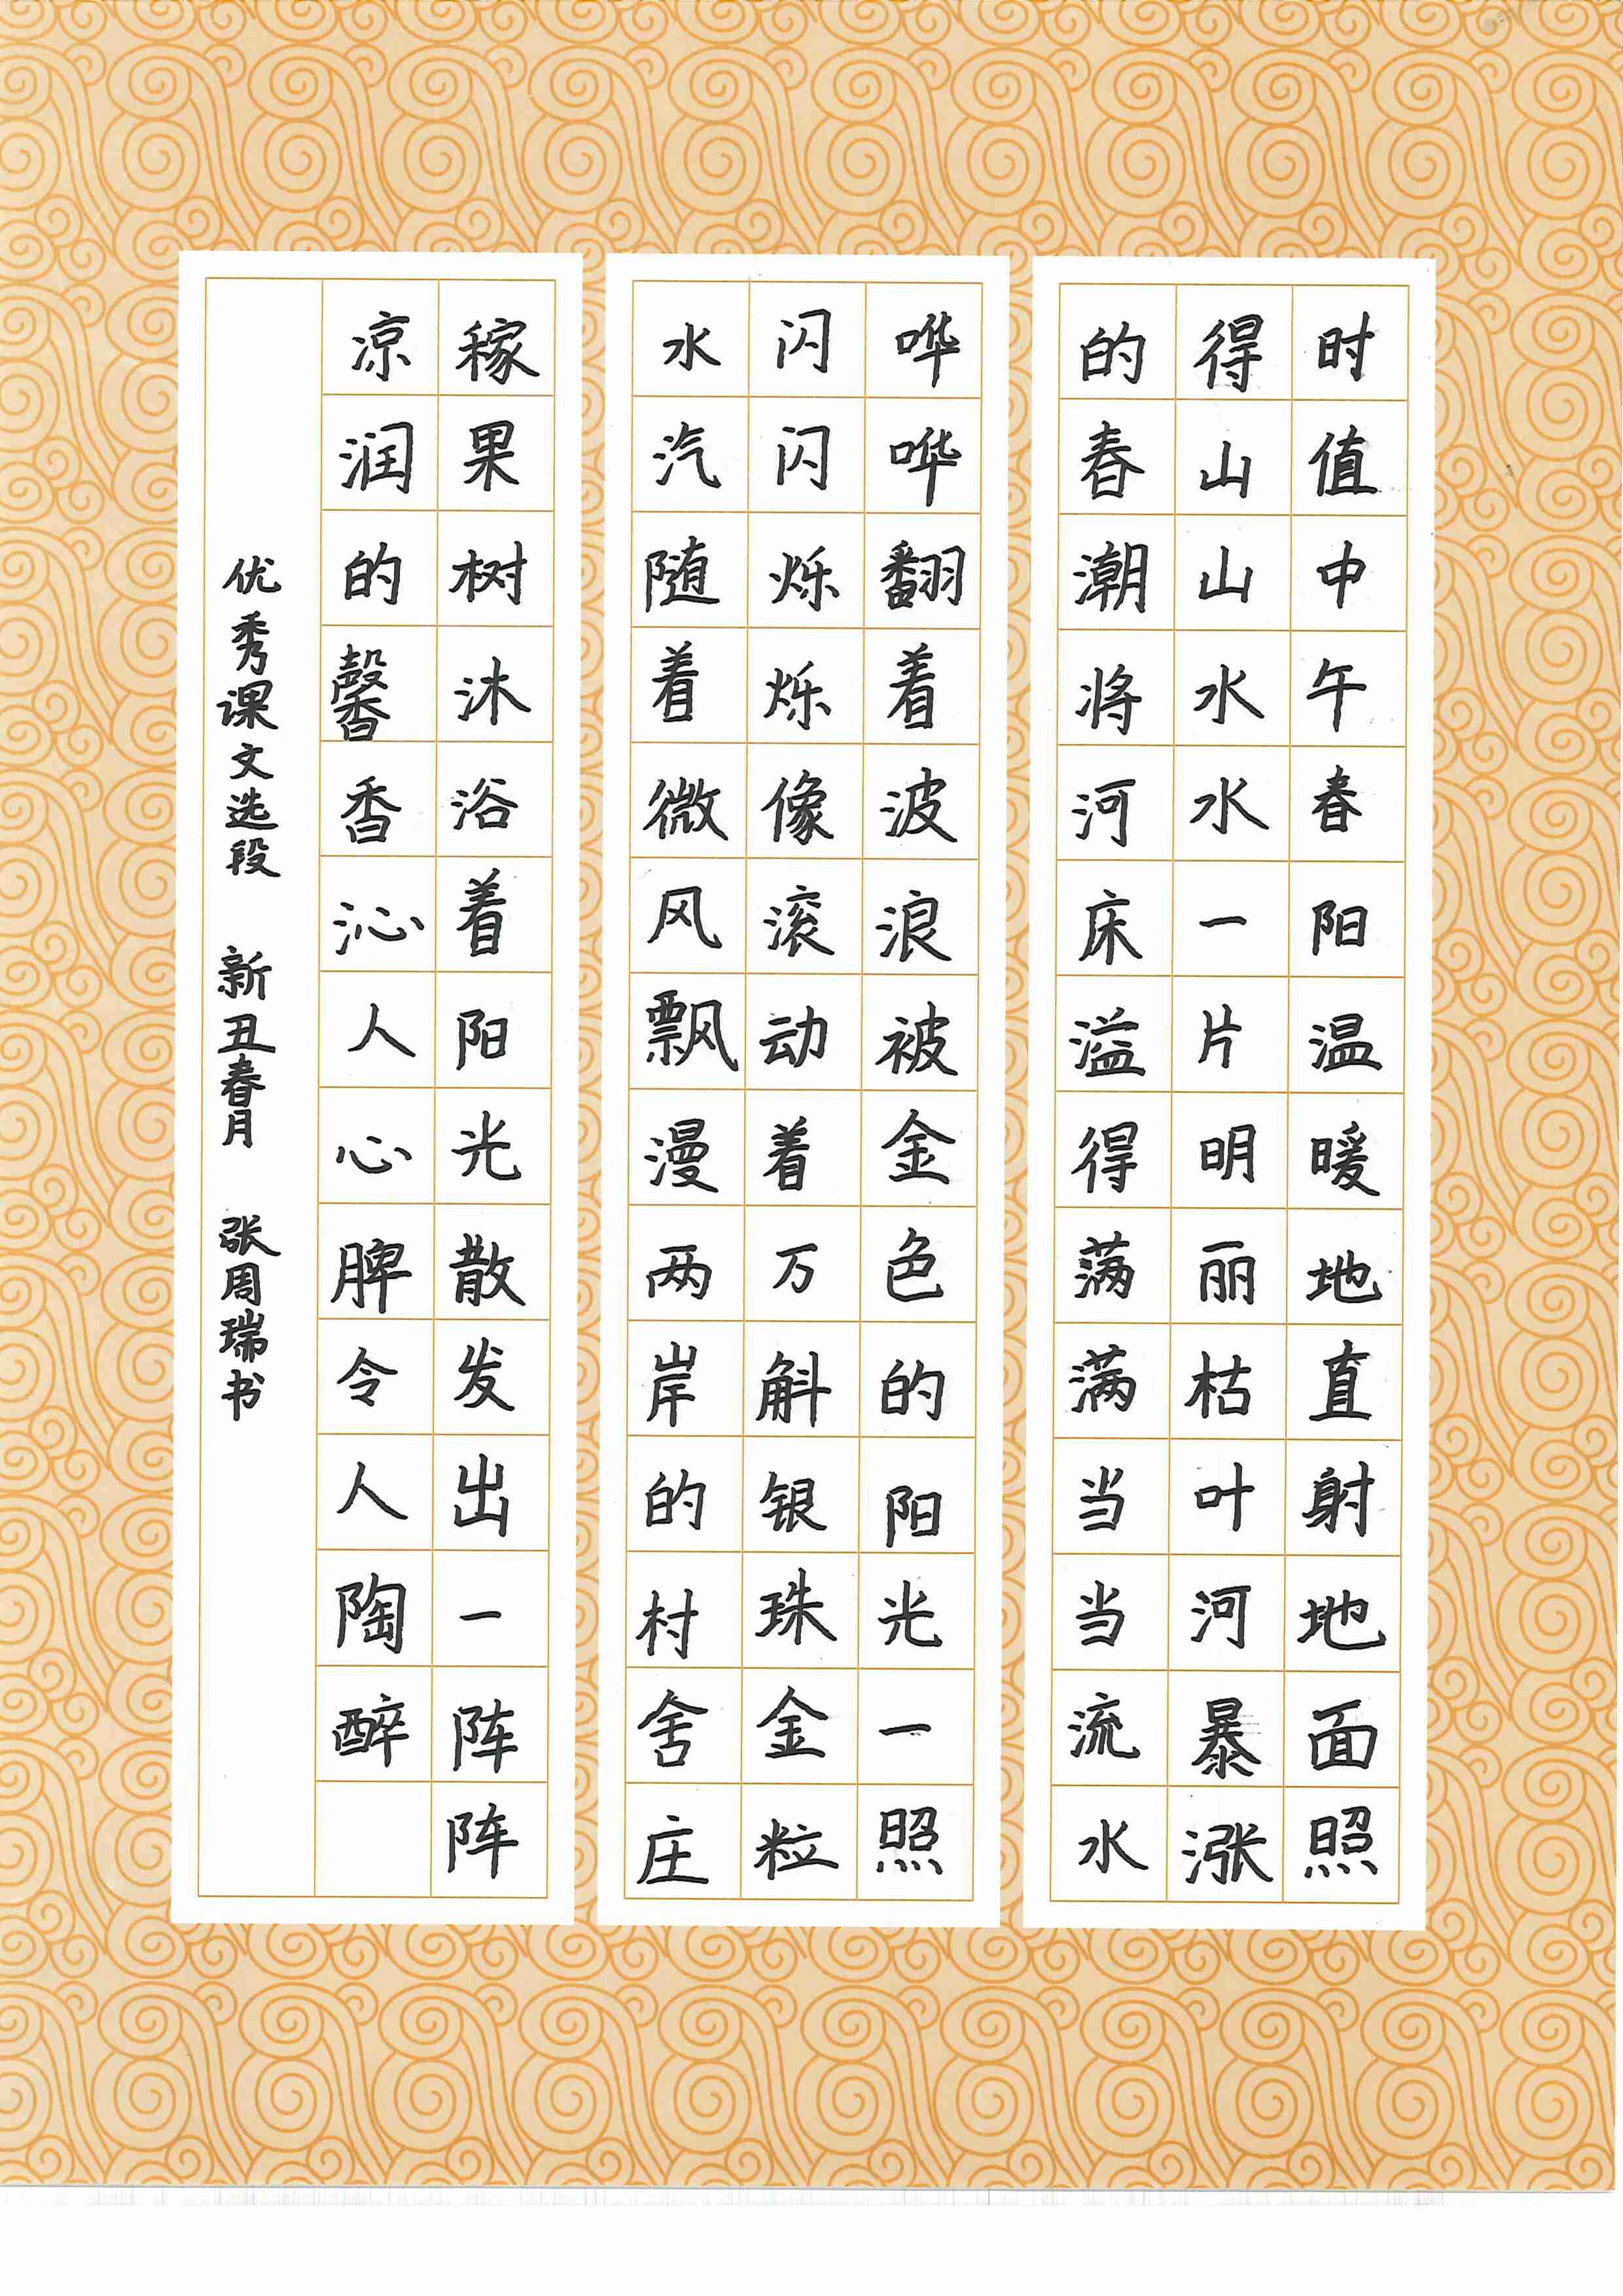 时值中午春阳温暖地直射地面照
得山山水水一片明丽枯叶河暴涨
的春潮将河床溢得满满当当流水
哗哗翻着波浪被金色的阳光一照
闪闪烁烁像滚动着万斛银珠金粒
水汽随着微风飘漫两岸的村舍庄
稼果树沐浴着阳光散发出一阵阵
凉润的馨香沁人心脾令人陶醉
优秀课文选段 新丑春月 张周瑞书